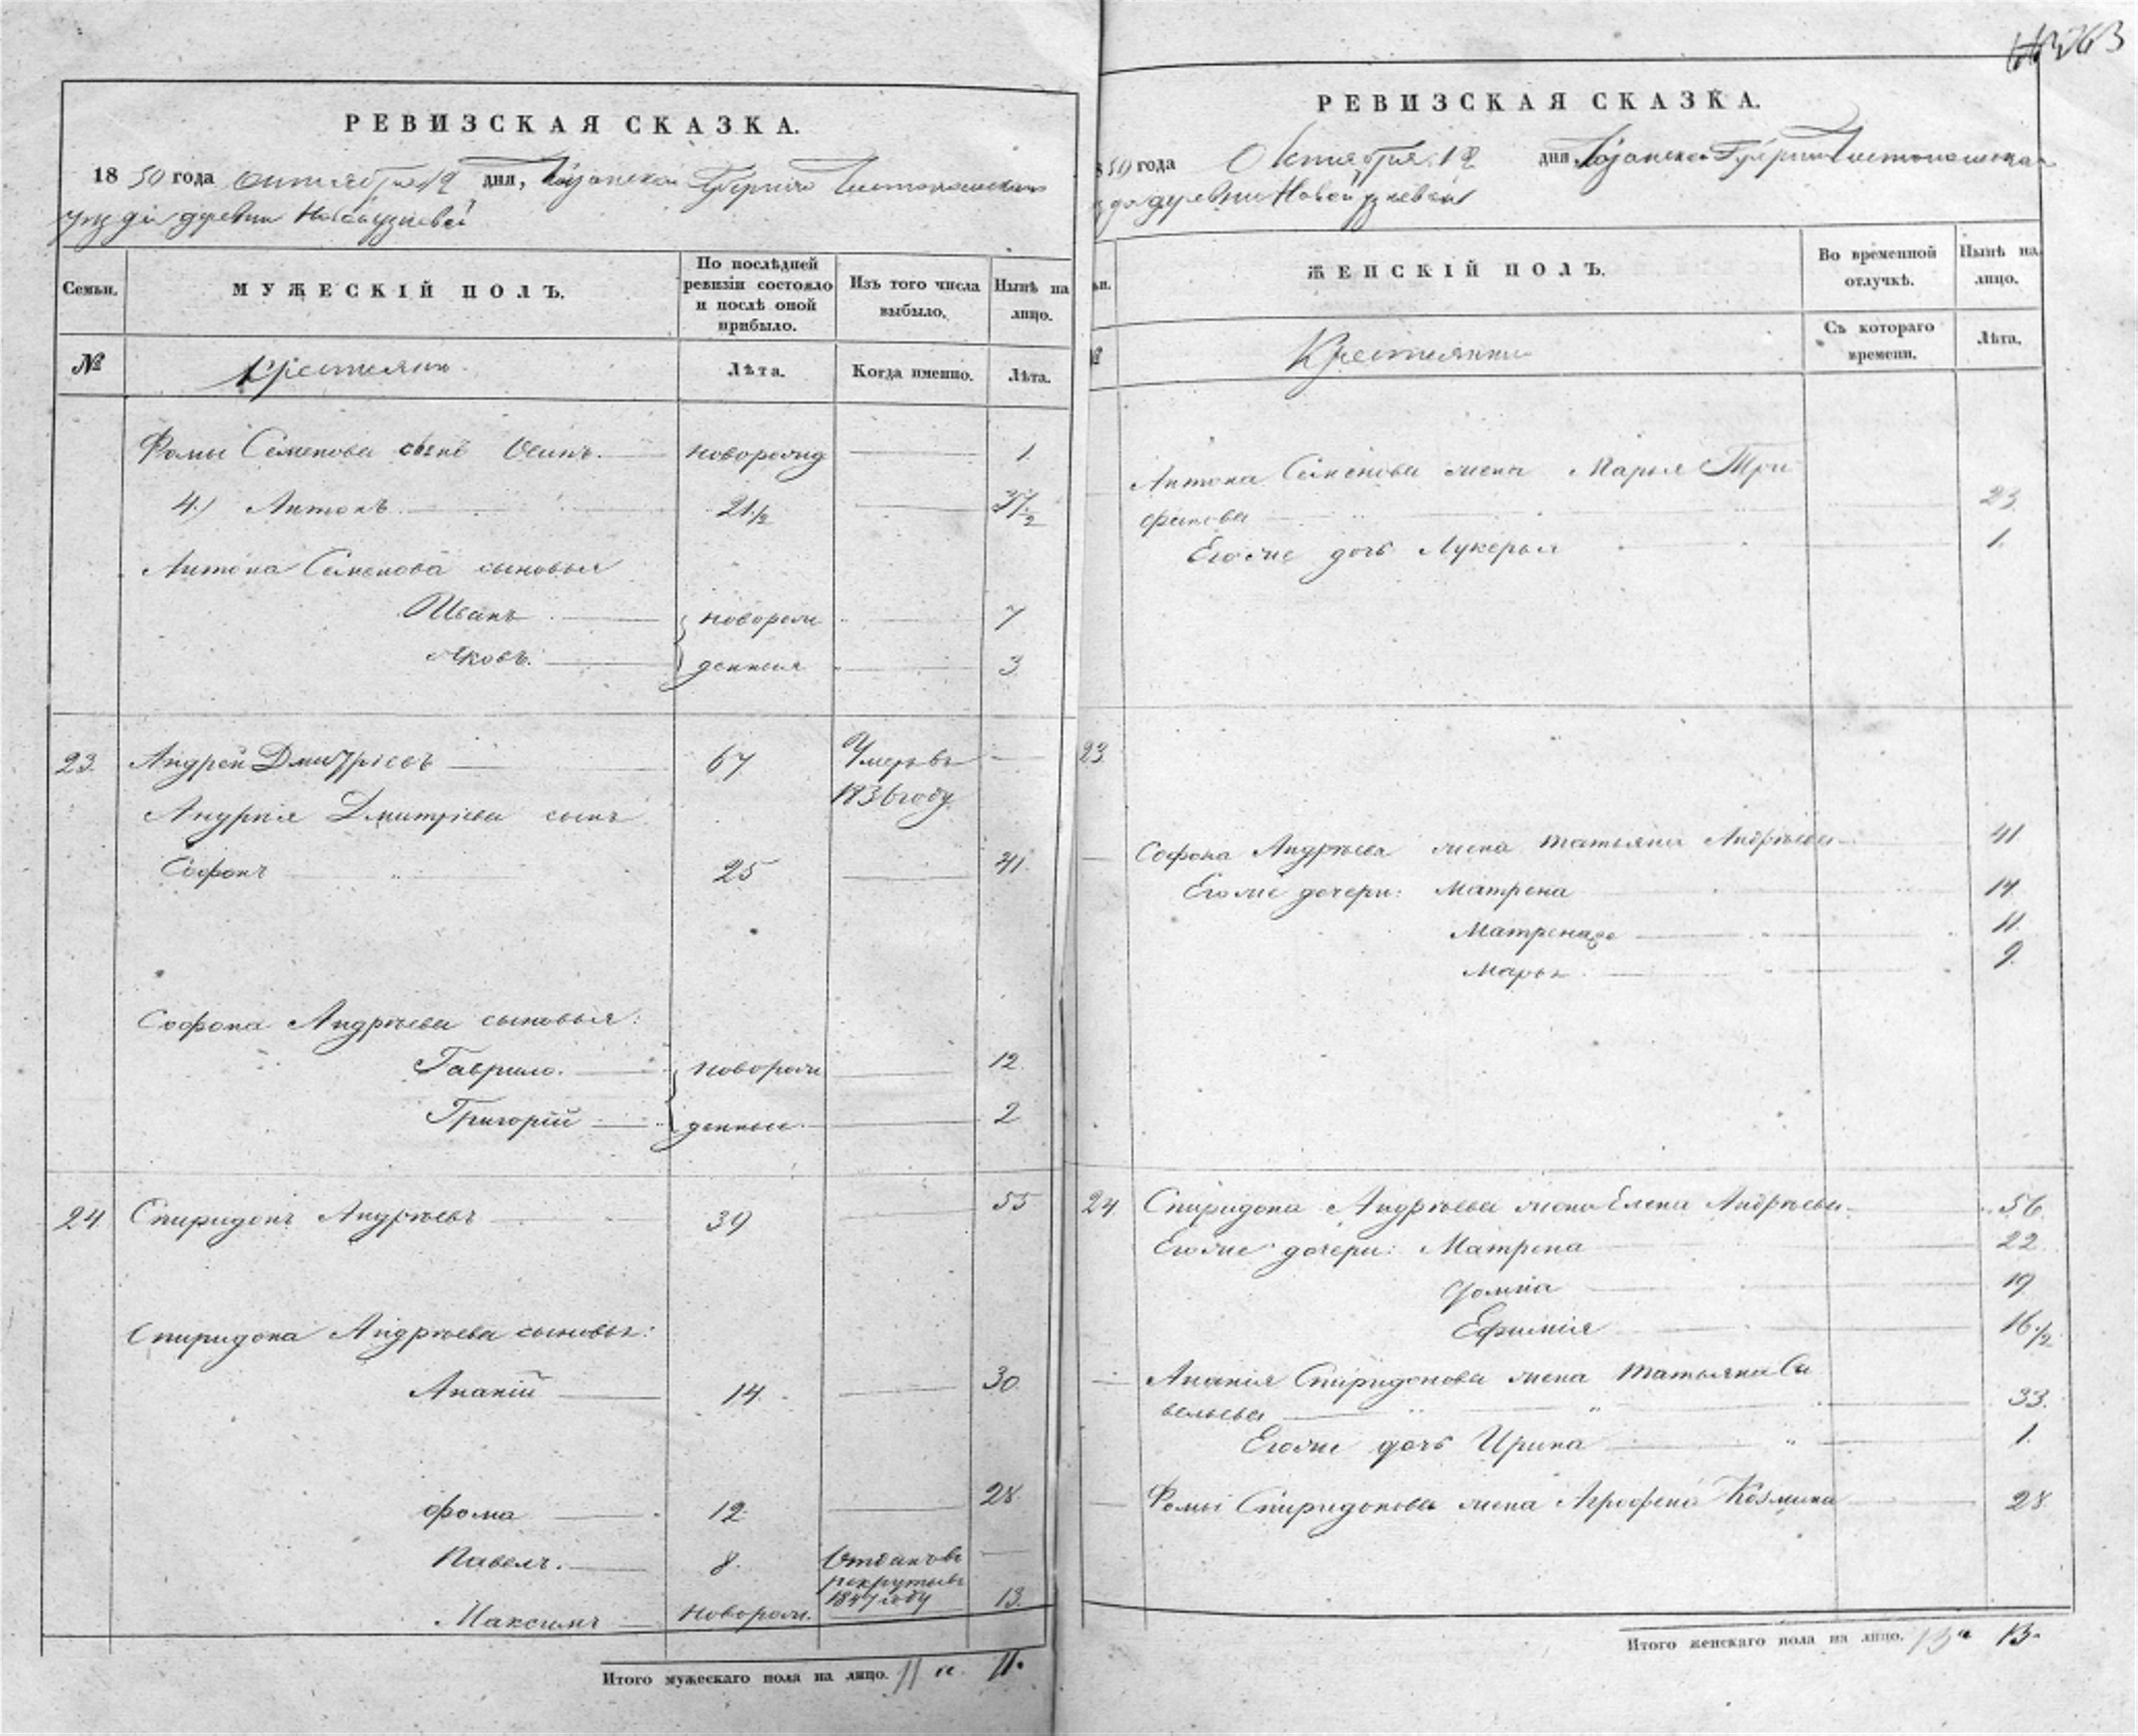 РЕВИЗСКАЯ СКАЗКА.
1850 года октября 12 дня, Казанской Губернiи Чистопольскаго
уезда деревни Новой
Семьи.
МУЖЕСКIЙ ПОЛЪ.
По послѣдней ревизiи состояло и послѣ оной прибыло.
Изъ того числа выбыло.
Нынѣ на лицо.
№
Крестьяне
Лѣта.
Когда именно.
Лѣта.
Фомы Семенова сынъ Осипъ. новорожд 1.
4.) Антонъ 21 1/2 37 1/2
Антона Семенова сыновья
Иванъ новорож 7
Яковъ. денныя 3
23 Андрей Дмитрiевъ 67 Умеръ въ
1836 году.
Андрея Дмитрiева сынъ
Софонъ 25 41
Софона Андрѣева сыновья:
Гаврило. новорож 12
Григорiй денные 2
24 Спиридонъ Андрѣевъ 39 55
Спиридона Андрѣева сыновья:
Ананiй 14 30
Фома 12 28
Павелъ. 8. Отданъ въ
рекруты въ
1847 году
Максимъ новорож. 13
Итого мужескаго пола на лицо. 11 11.
263
РЕВИЗСКАЯ СКАЗКА.
1850 года Октября 12 дня Казанской Губернiи Чистопольскаго
деревни Новой
ЖЕНСКIЙ ПОЛЪ.
Во временной отлучкѣ.
Нынѣ на лицо.
№
Крестьянки
Съ котораго времени.
Лѣта.
Антона Семенова жена Марья Три
фанова 23
Его же дочь Лукерья 1.
23
Софона Андрѣева жена Татьяна Андрѣева 41
Его же дочери: Матрена 14
Матрена 2е 11
Марья 9.
24 Спиридона Андрѣева жена Елена Андрѣева 56
Его же дочери: Матрена 22
Домна 19
Ефимiя 16 1/2
Ананiя Спиридонова жена Татьяна Са
вельева 33.
Его же дочь Ирина 1.
Фомы Спиридонова жена Агрофена Козмина 28
Итого женскаго пола на лицо. 13 13.